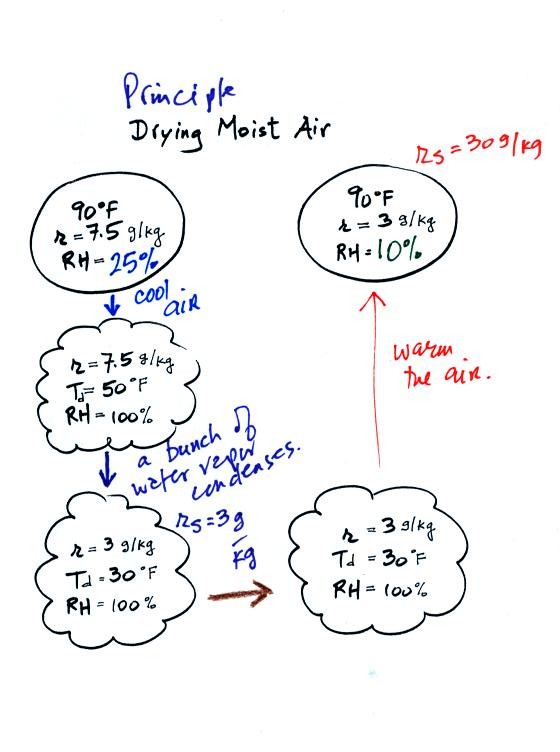 Principle
Drying Moist Air
rs = 30 g/kg
90°F
r = 7.5 g/kg
RH = 25%
cool
air
r = 7.5 g/kg
Td = 50°F
RH = 100%
a bunch of
water vapor
condenses.
rs = 3 g
kg
r = 3 g/kg
Td = 30°F
RH = 100%
r = 3 g/kg
Td = 30°F
RH = 100%
warm
the air.
90°F
r = 3 g/kg
RH = 10%